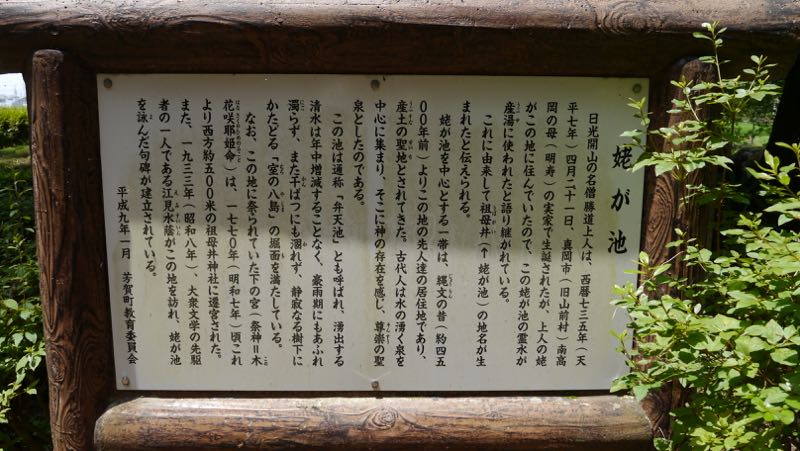 姥が池
日光開山の名僧勝道上人は、西暦七三五年（天
平七年）四月二十一日、真岡市（旧山前村）南高
岡の母（明寿）の実家で生誕されたが、上人の姥
がこの地に住んでいたので、この姥が池の霊水が
産湯に使われたと語り継がれている。
これに由来して祖母井（↑姥が池）の地名が生
まれたと伝えられる。
姥が池を中心とする一帯は、縄文の昔（約四五
００年前）よりこの地の先人達の居住地であり、
産土の聖地とされてきた。古代人は水の湧く泉を
中心に集まり、そこに神の存在を感じ、尊崇の聖
泉としたのである。
この池は通称「弁天池」とも呼ばれ、湧出する
清水は年中増減することなく、豪雨期にもあふれ
濁らず、また干ばつにも涸れず、静寂なる樹下に
かたどる「室の八島」の堀面を満たしている。
なお、この地に祭られていた下の宮（祭神＝木
花咲耶姫命）は、一七七〇年（明和七年）頃これ
より西方約五００米の祖母井神社に遷宮された。
また、一九三三年（昭和八年）、大衆文学の先駆
者の一人である江見水蔭がこの地を訪れ、姥が池
を詠んだ句碑が建立されている。
平成九年一月　芳賀町教育委員会